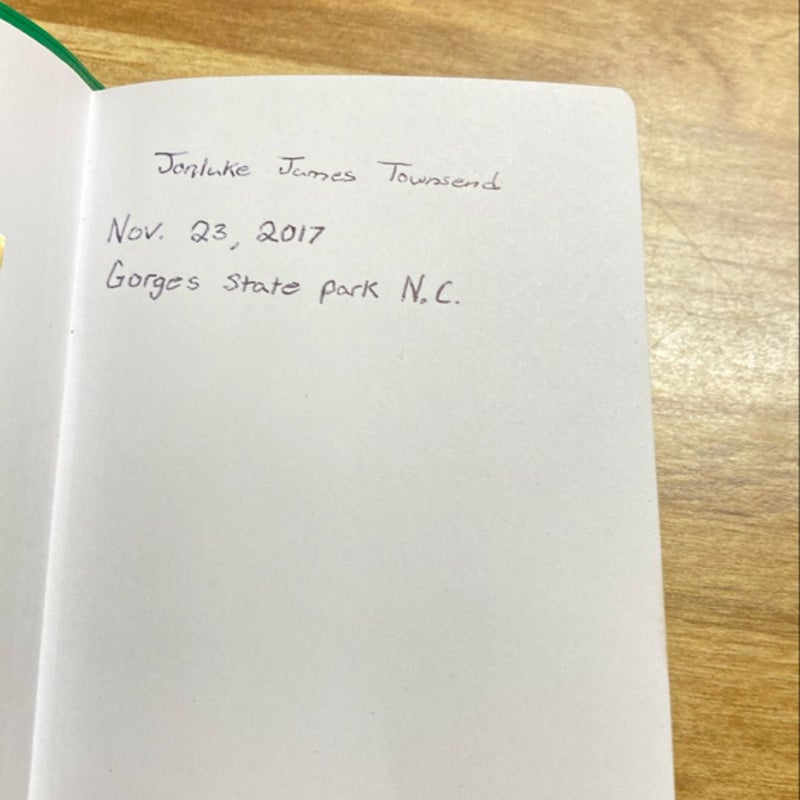 Jonluke James Townsend
Nov. 23, 2017
Gorges State park N.C.